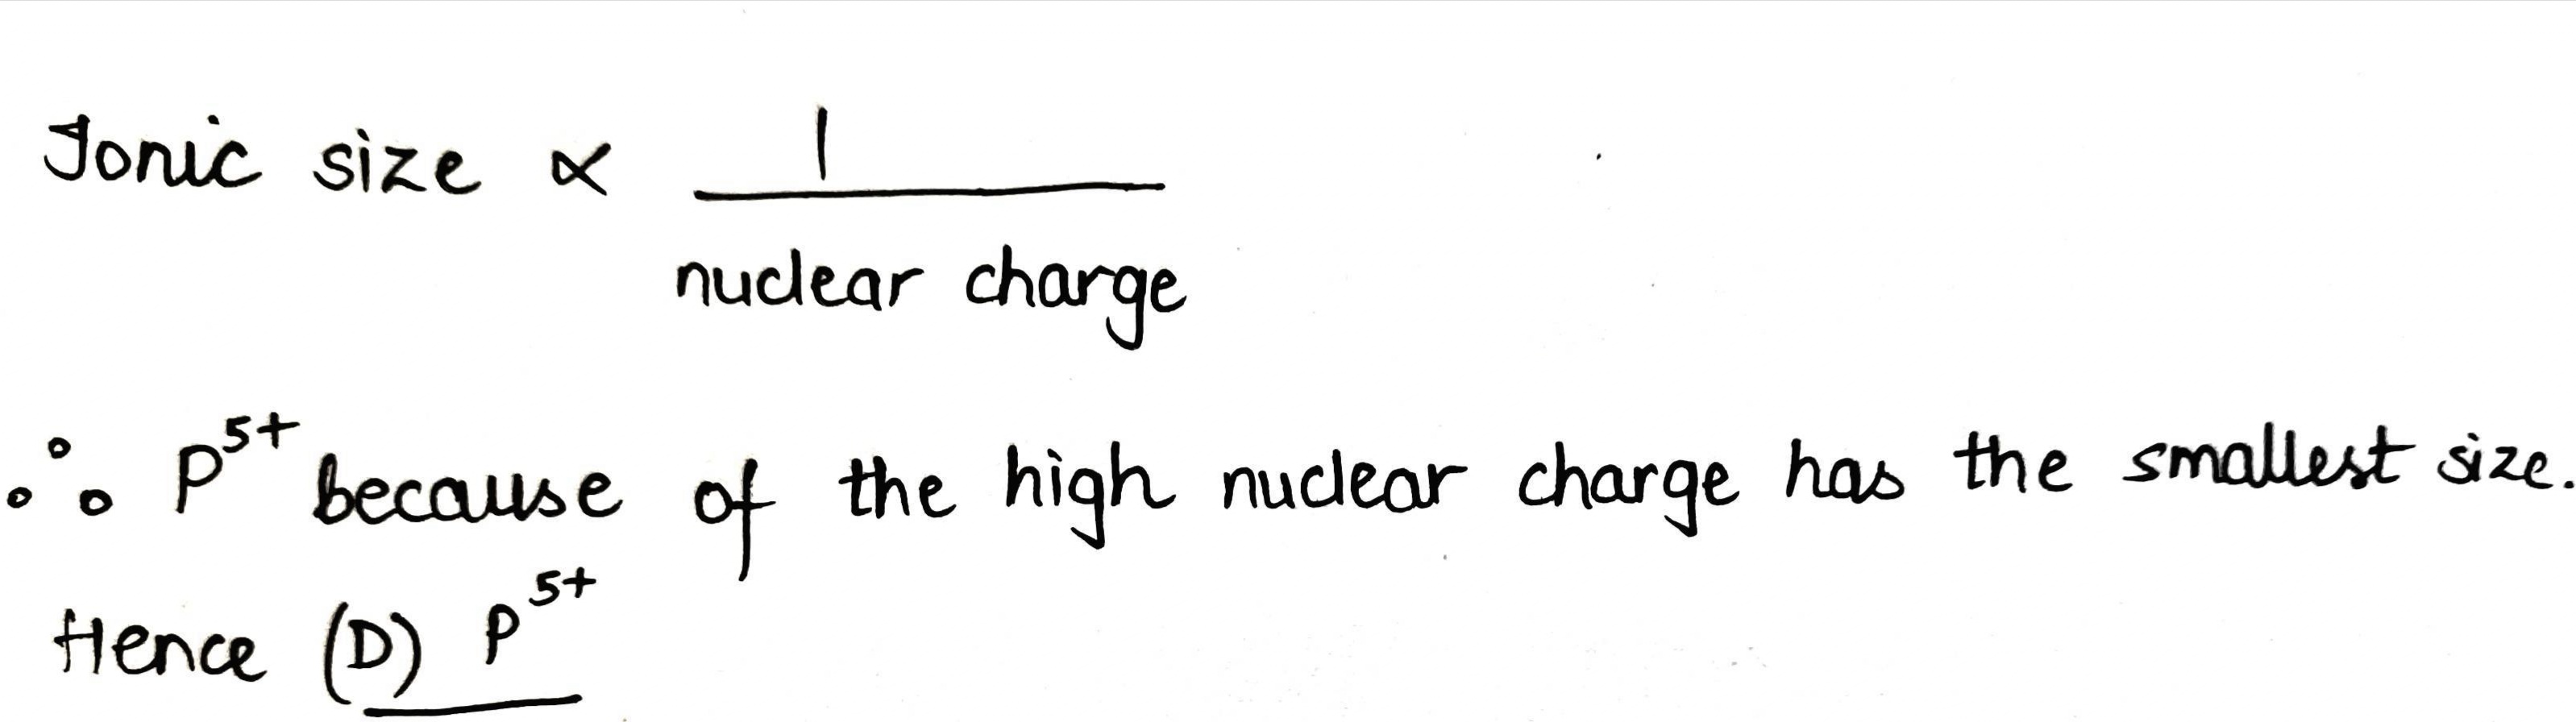 Ionic size ∝ 1
nuclear charge
∴ P⁵⁺ because of the high nuclear charge has the smallest size.
Hence (D) P⁵⁺